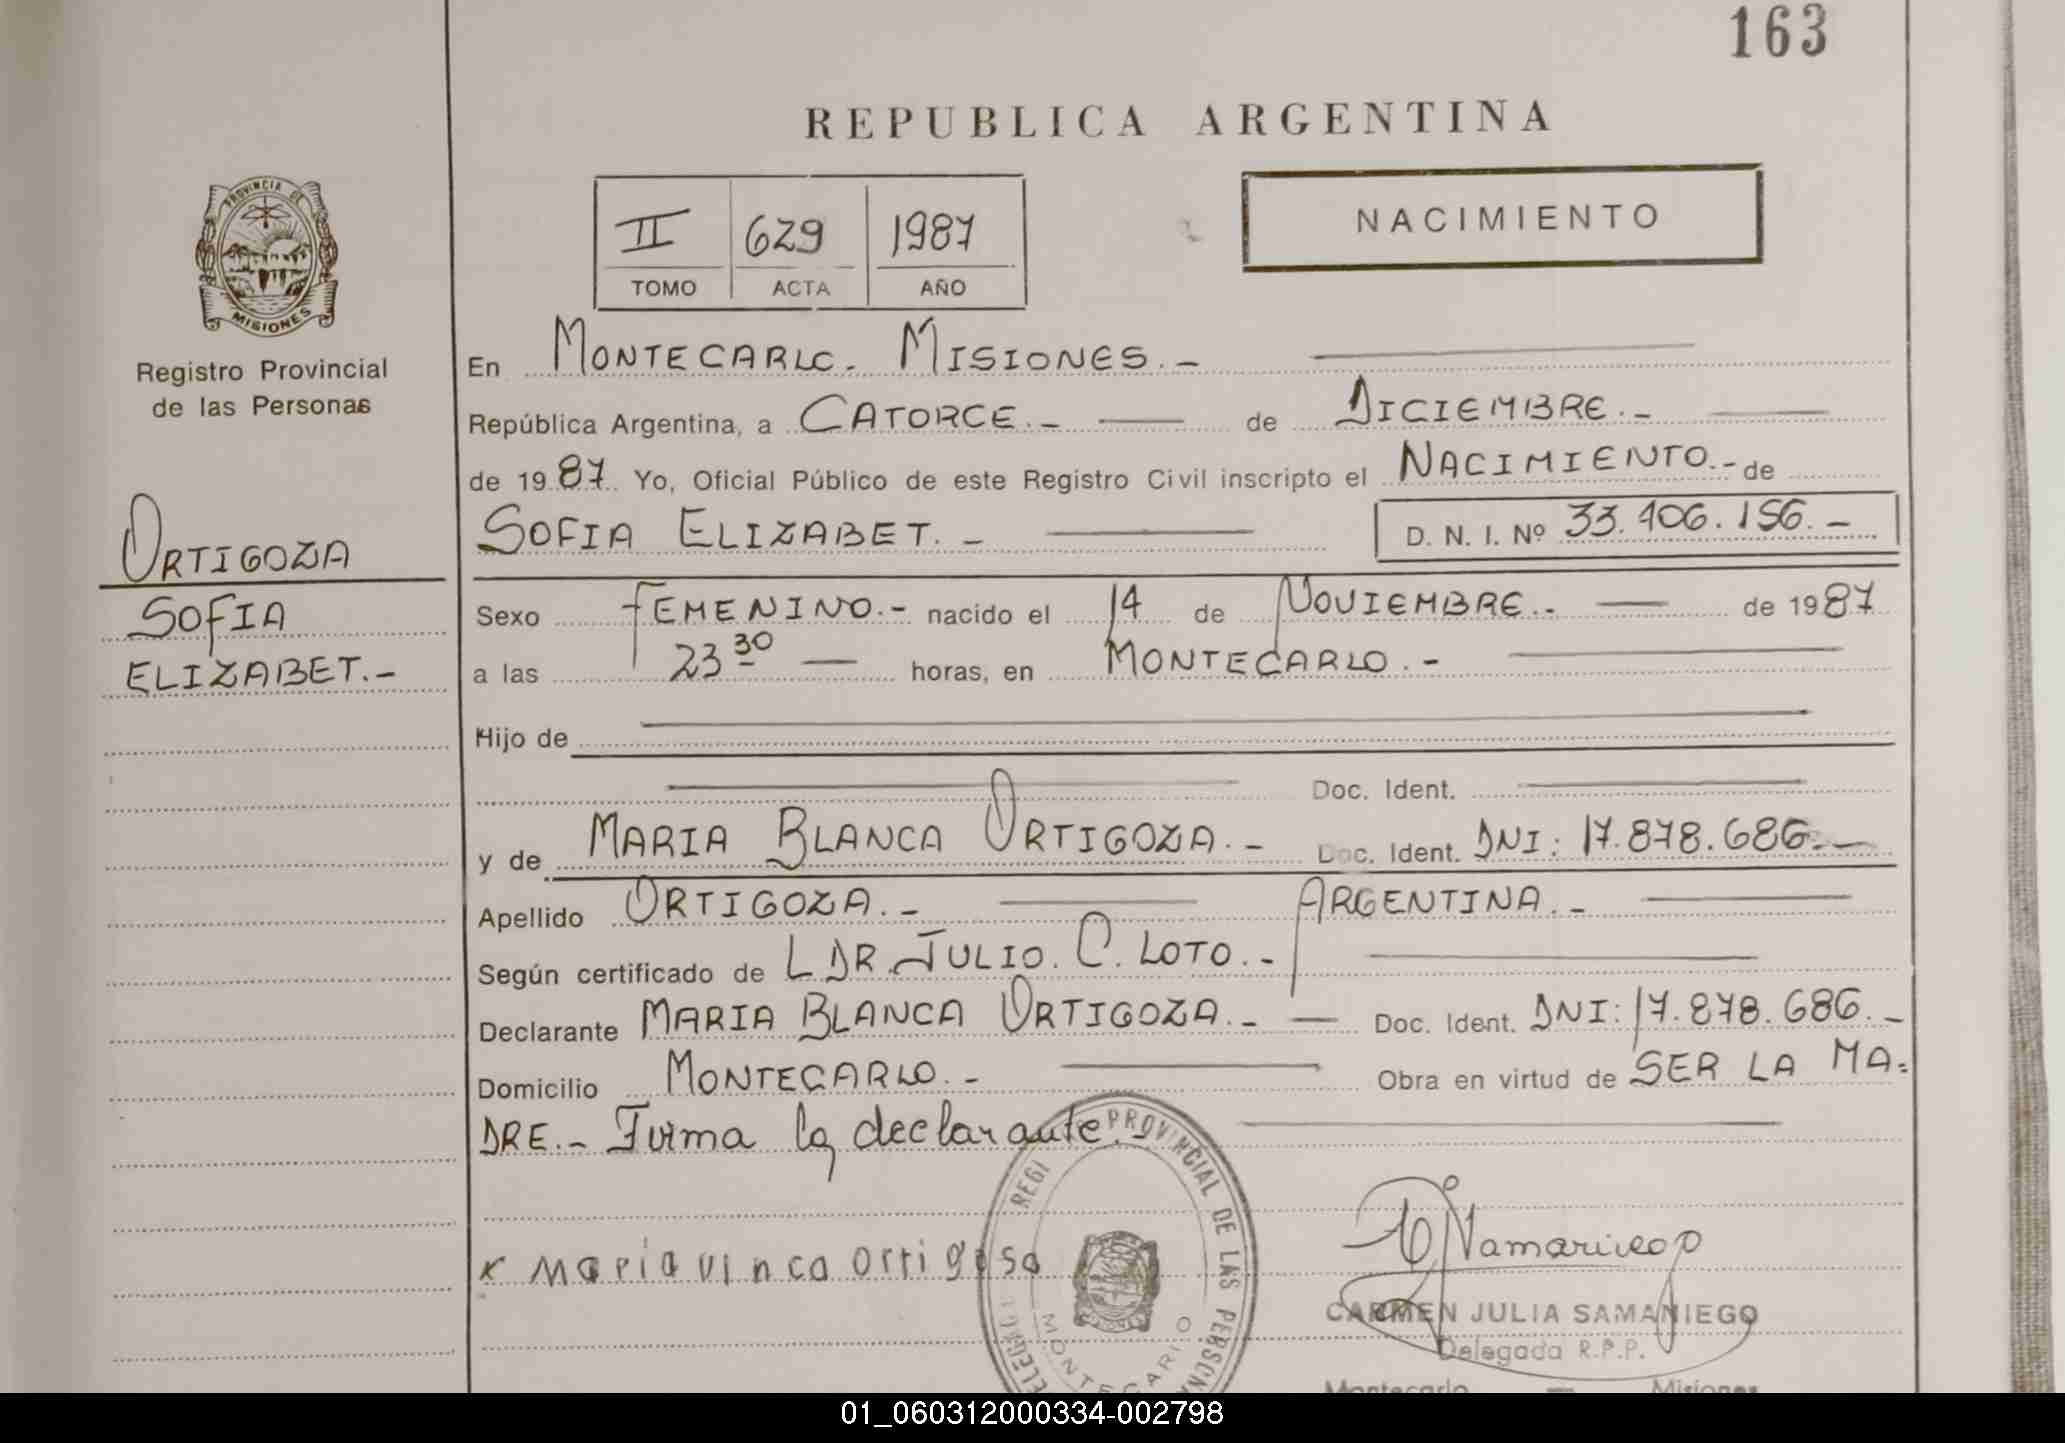 163
REPUBLICA ARGENTINA
PROVINCIA DE
MISIONES
Registro Provincial
de las Personas
II 629 1987
TOMO ACTA AÑO
NACIMIENTO
En MONTECARLO. MISIONES.-
República Argentina, a CATORCE.- de DICIEMBRE.-
de 1987 Yo, Oficial Público de este Registro Civil inscripto el NACIMIENTO.- de
SOFIA ELIZABET.- D. N. I. Nº 33.406.156.-
ORTIGOZA
SOFIA
ELIZABET.-
Sexo FEMENINO.- nacido el 14 de NOVIEMBRE.- de 1987
a las 23 30 horas, en MONTECARLO.-
Hijo de
Doc. Ident.
y de MARIA BLANCA ORTIGOZA.- Doc. Ident. DNI: 17.878.686.-
Apellido ORTIGOZA.- ARGENTINA.-
Según certificado de L. DR. JULIO. C. LOTO.-
Declarante MARIA BLANCA ORTIGOZA.- Doc. Ident. DNI: 17.878.686.-
Domicilio MONTECARLO.- Obra en virtud de SER LA MA=
DRE.- Firma la declarante.-
x maria vinca Ortigosa
PROVINCIAL DE LAS PERSONAS
MONTECARLO
CARMEN JULIA SAMANIEGO
Delegada R.P.P.
Montecarlo — Misiones
01_060312000334-002798